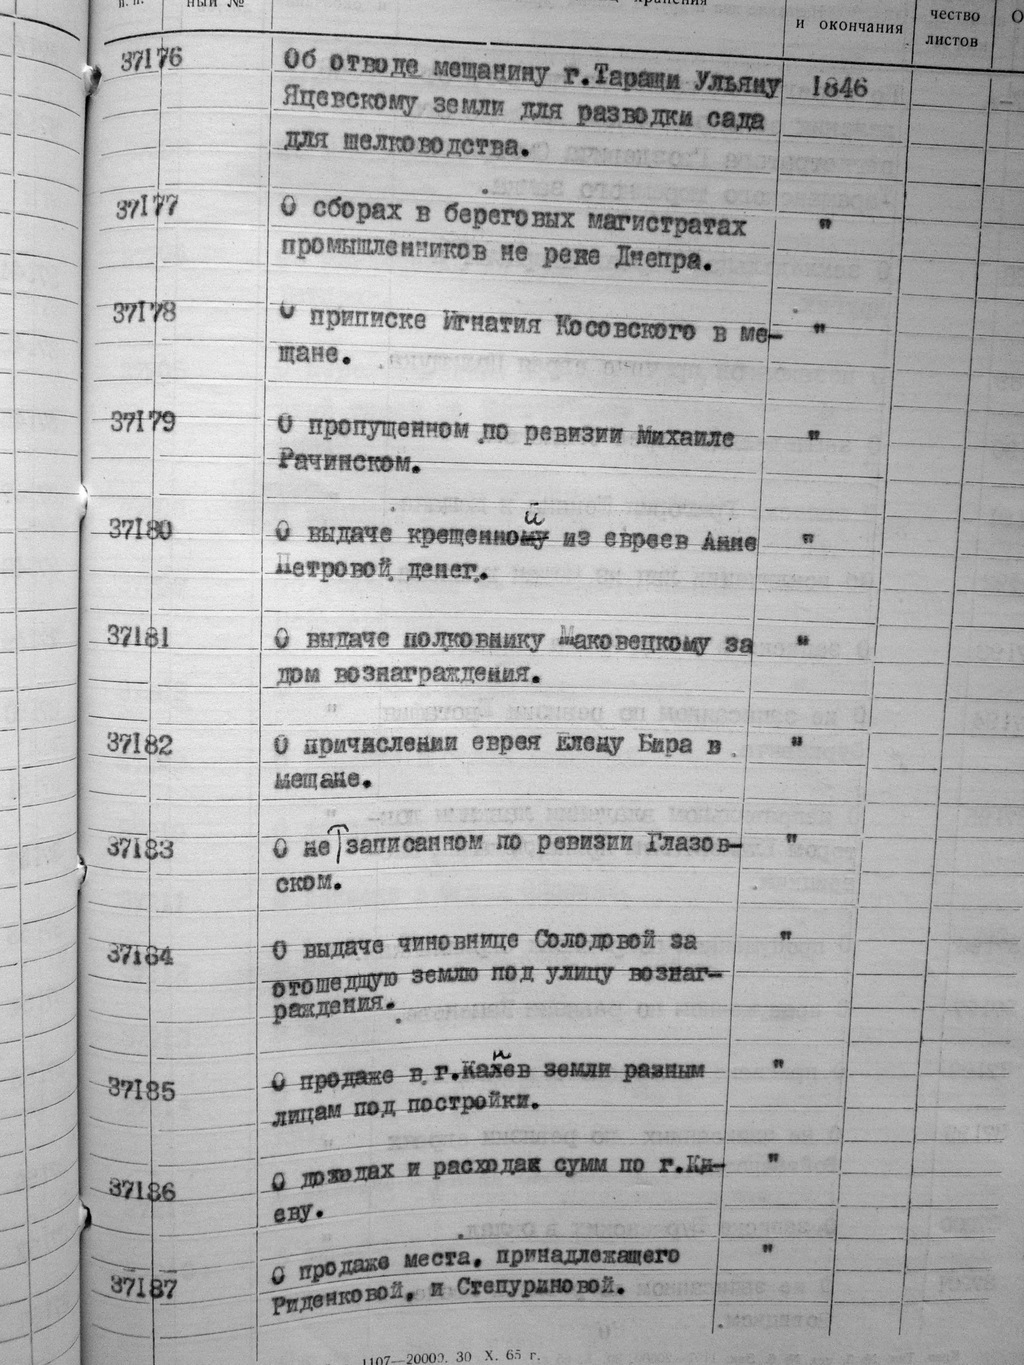 п.п.
ный №
хранения
и окончания
чество
листов
О
37176
Об отводе мещанину г.Таращи Ульяну
1846
Яцевскому земли для разводки сада
для шелководства.
37177
О сборах в береговых магистратах
"
промышленников не реке Днепра.
37178
О приписке Игнатия Косовского в ме-
"
щане.
37179
О пропущенном по ревизии Михаиле
"
Рачинском.
й
37180
О выдаче крещенному из евреев Анне
"
Петровой денег.
37181
О выдаче полковнику Маковецкому за
"
дом вознаграждения.
37182
О причислении еврея Еленy Бира в
"
мещане.
37183
О не записанном по ревизии Глазов-
"
ском.
37184
О выдаче чиновнице Солодовой за
"
отошедщую землю под улицу вознаг-
раждения.
37185
О продаже в г.Калев земли разным
"
лицам под постройки.
37186
О доходах и расходак сумм по г.Ки-
"
еву.
37187
О продаже места, принадлежащего
"
Риденковой, и Степуриновой.
1107—20000. 30 X. 65 г.